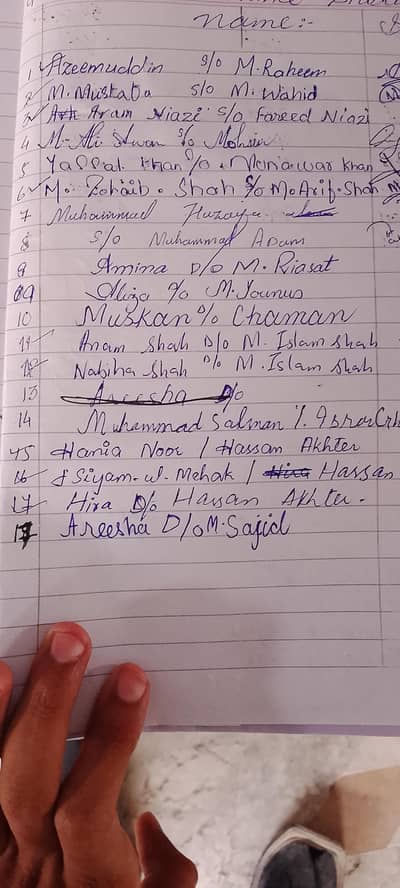 name:-
1 Azeemuddin S/o M.Raheem
2 M.Mustaba S/o M.Wahid
3 Aram Niazi S/o Fareed Niazi
4 M. Ali S/o
5 Khan S/o Khan
6 M. Zohaib. Shah S/o M.Arif.Shah
7 Muhammad Huzayfa
8 S/o Muhammad Adam
9 Amina D/o M. Riasat
09 Aliza D/o M. Younus
10 Muskan D/o Chaman
11 Anam Shah D/o M. Islam Shah
12 Nabiha Shah D/o M. Islam Shah
13 Areesha D/o
14 Muhammad Salman
15 Hania Noor / Hassan Akhter
16 Siyam-ul-Mehak / Hira Hassan
17 Hira D/o Hassan Akhter.
Areesha D/o M.Sajid